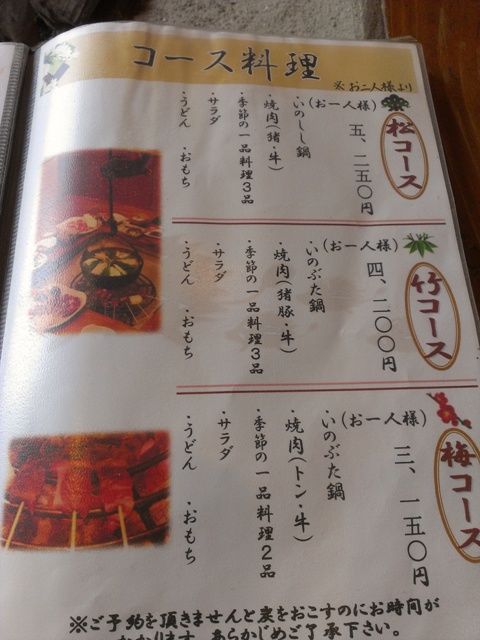 コース料理
※お二人様より
松コース
(お一人様)
五、二五〇円
・いのしし鍋
・焼肉(猪・牛)
・季節の一品料理3品
・サラダ
・うどん ・おもち
竹コース
(お一人様)
四、二〇〇円
・いのぶた鍋
・焼肉(猪豚・牛)
・季節の一品料理3品
・サラダ
・うどん ・おもち
梅コース
(お一人様)
三、一五〇円
・いのぶた鍋
・焼肉(トン・牛)
・季節の一品料理2品
・サラダ
・うどん ・おもち
※ご予約を頂きませんと炭をおこすのにお時間が
かかります。あらかじめご了承下さい。